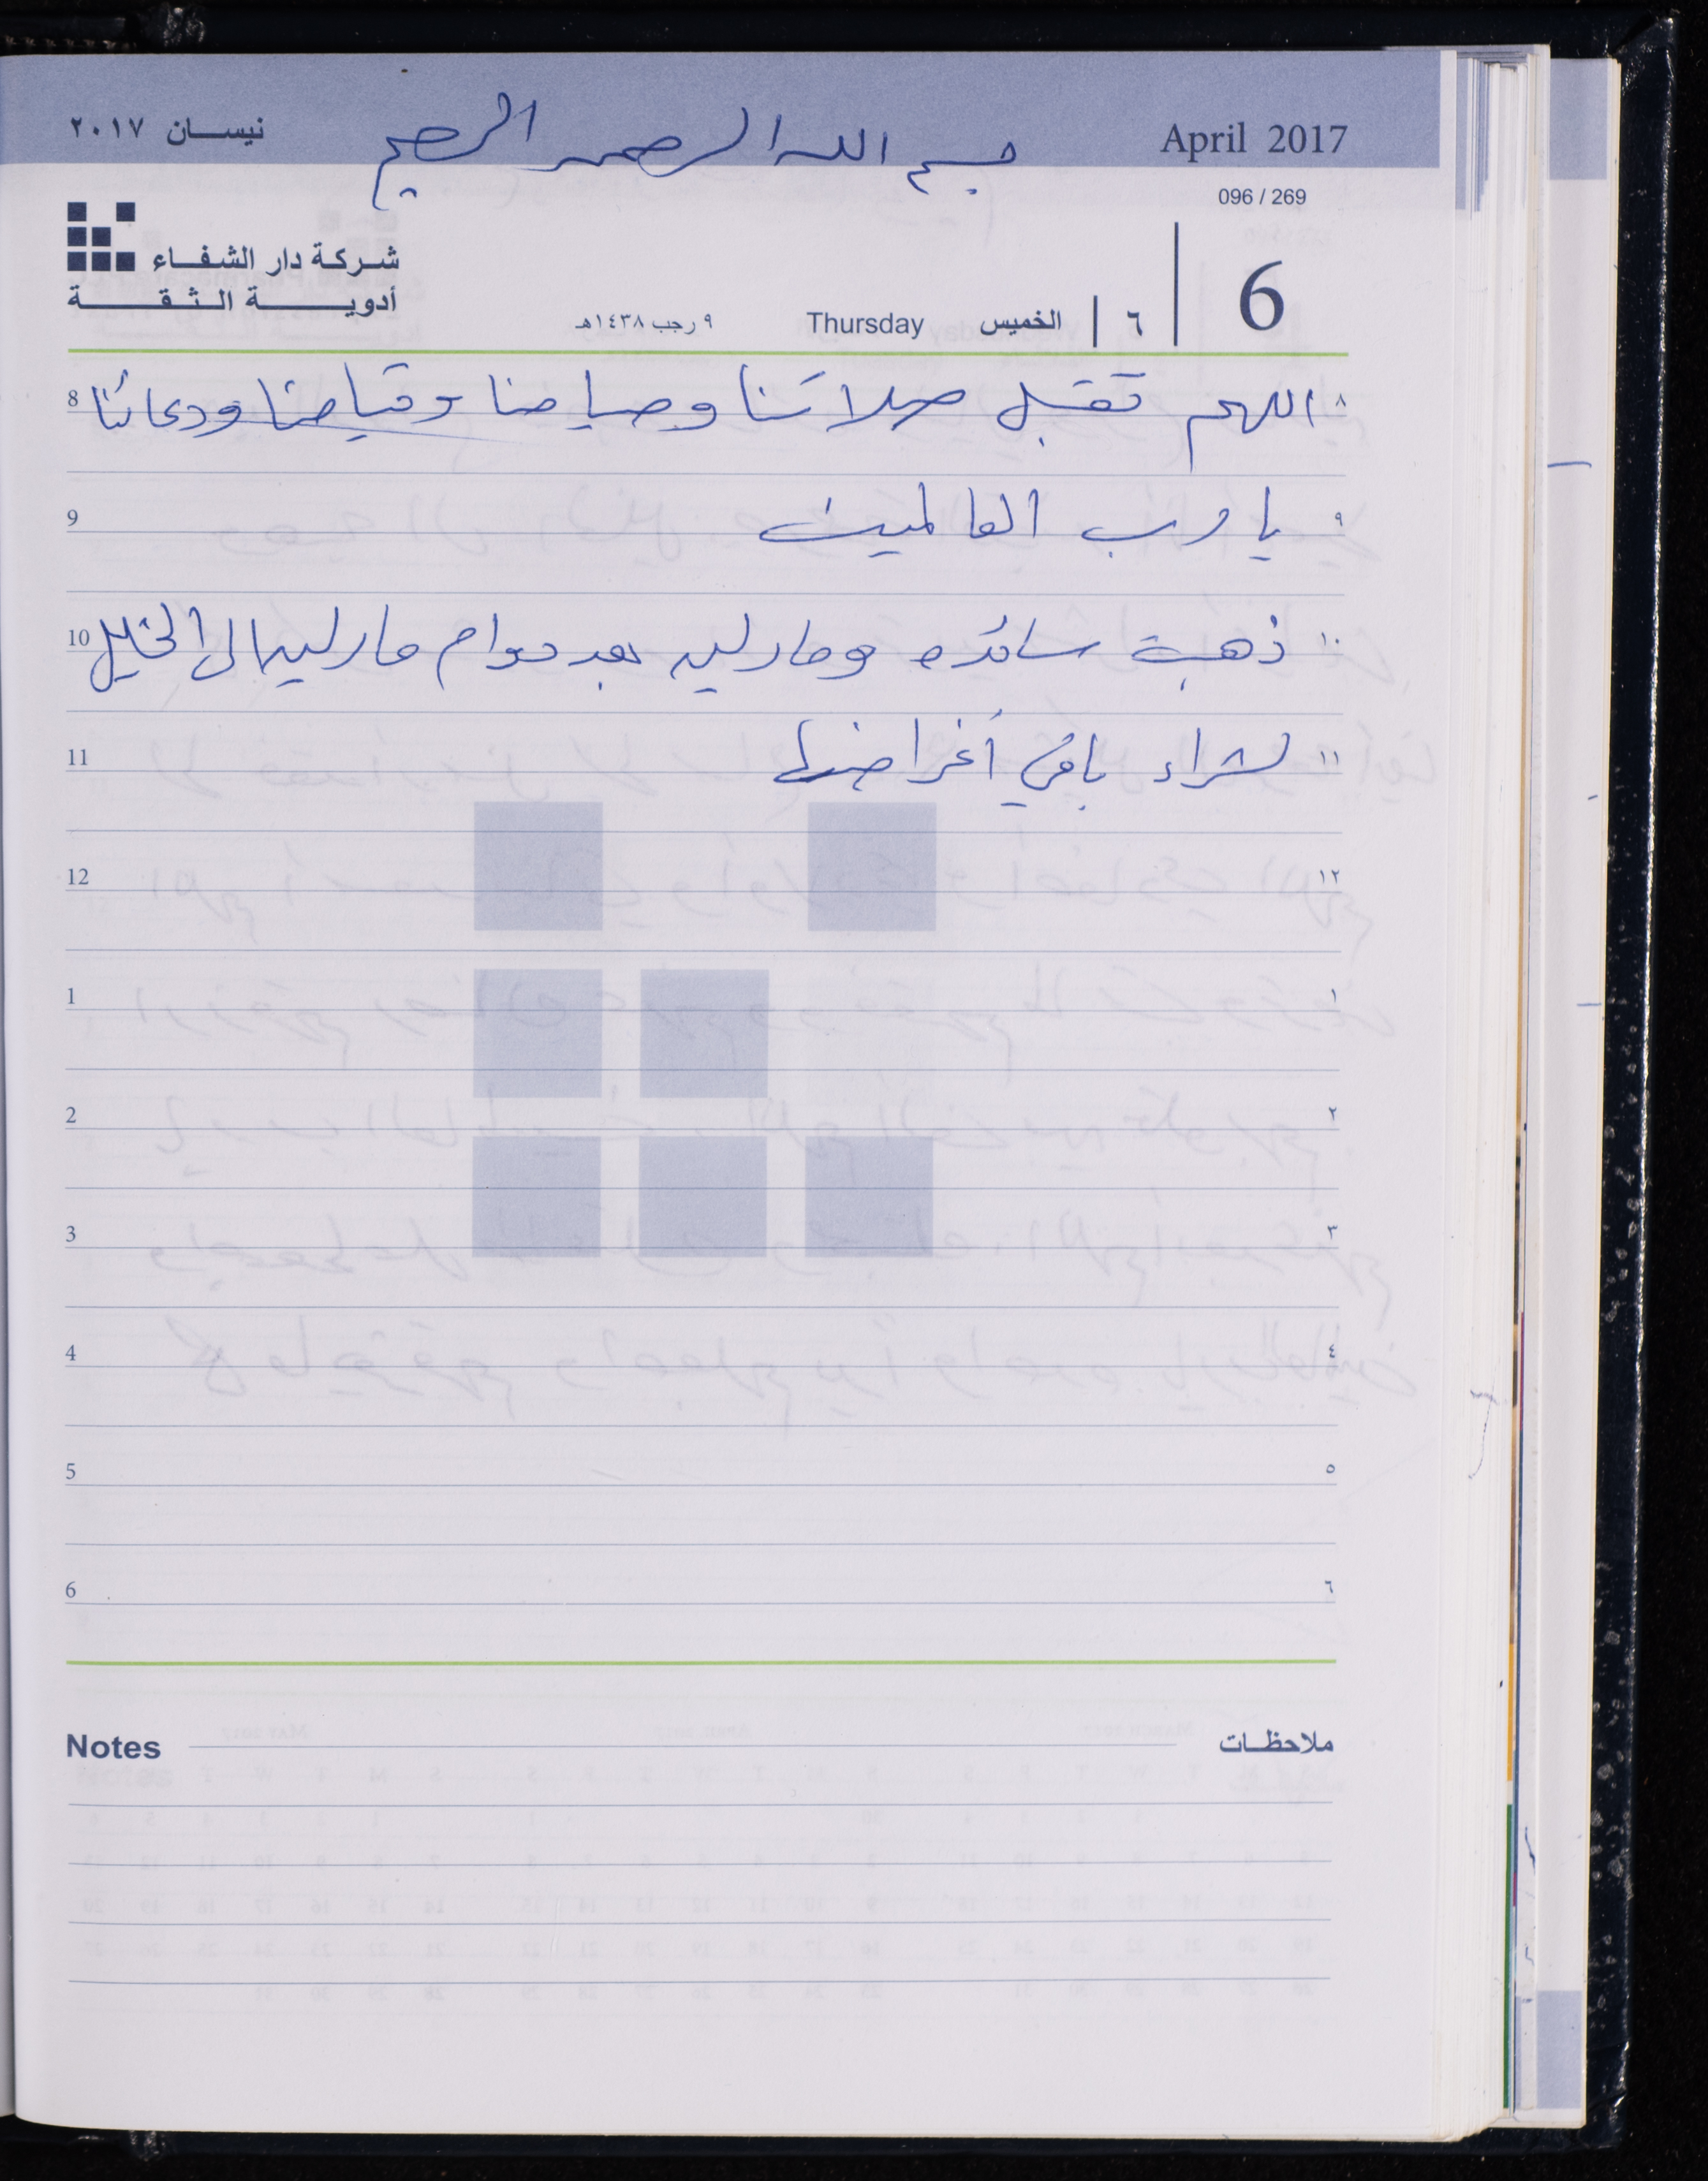 نيسان ٢٠١٧
بسم الله الرحمن الرحيم
April 2017
096 / 269
شركة دار الشفاء
أدوية الثقة
6
٦
الخميس
Thursday
٩ رجب ١٤٣٨هـ
8 اللهم تقبل صلاتنا وصيامنا وقيامنا ودعائنا ٨
9 يا رب العالمين ٩
10 ذهبة سائده ومارلين بعد دوام مارلين الى الخليل ١٠
11 لشراء باقي أغراضها ١١
12 ١٢
1 ١
2 ٢
3 ٣
4 ٤
5 ٥
6 ٦
Notes ملاحظات